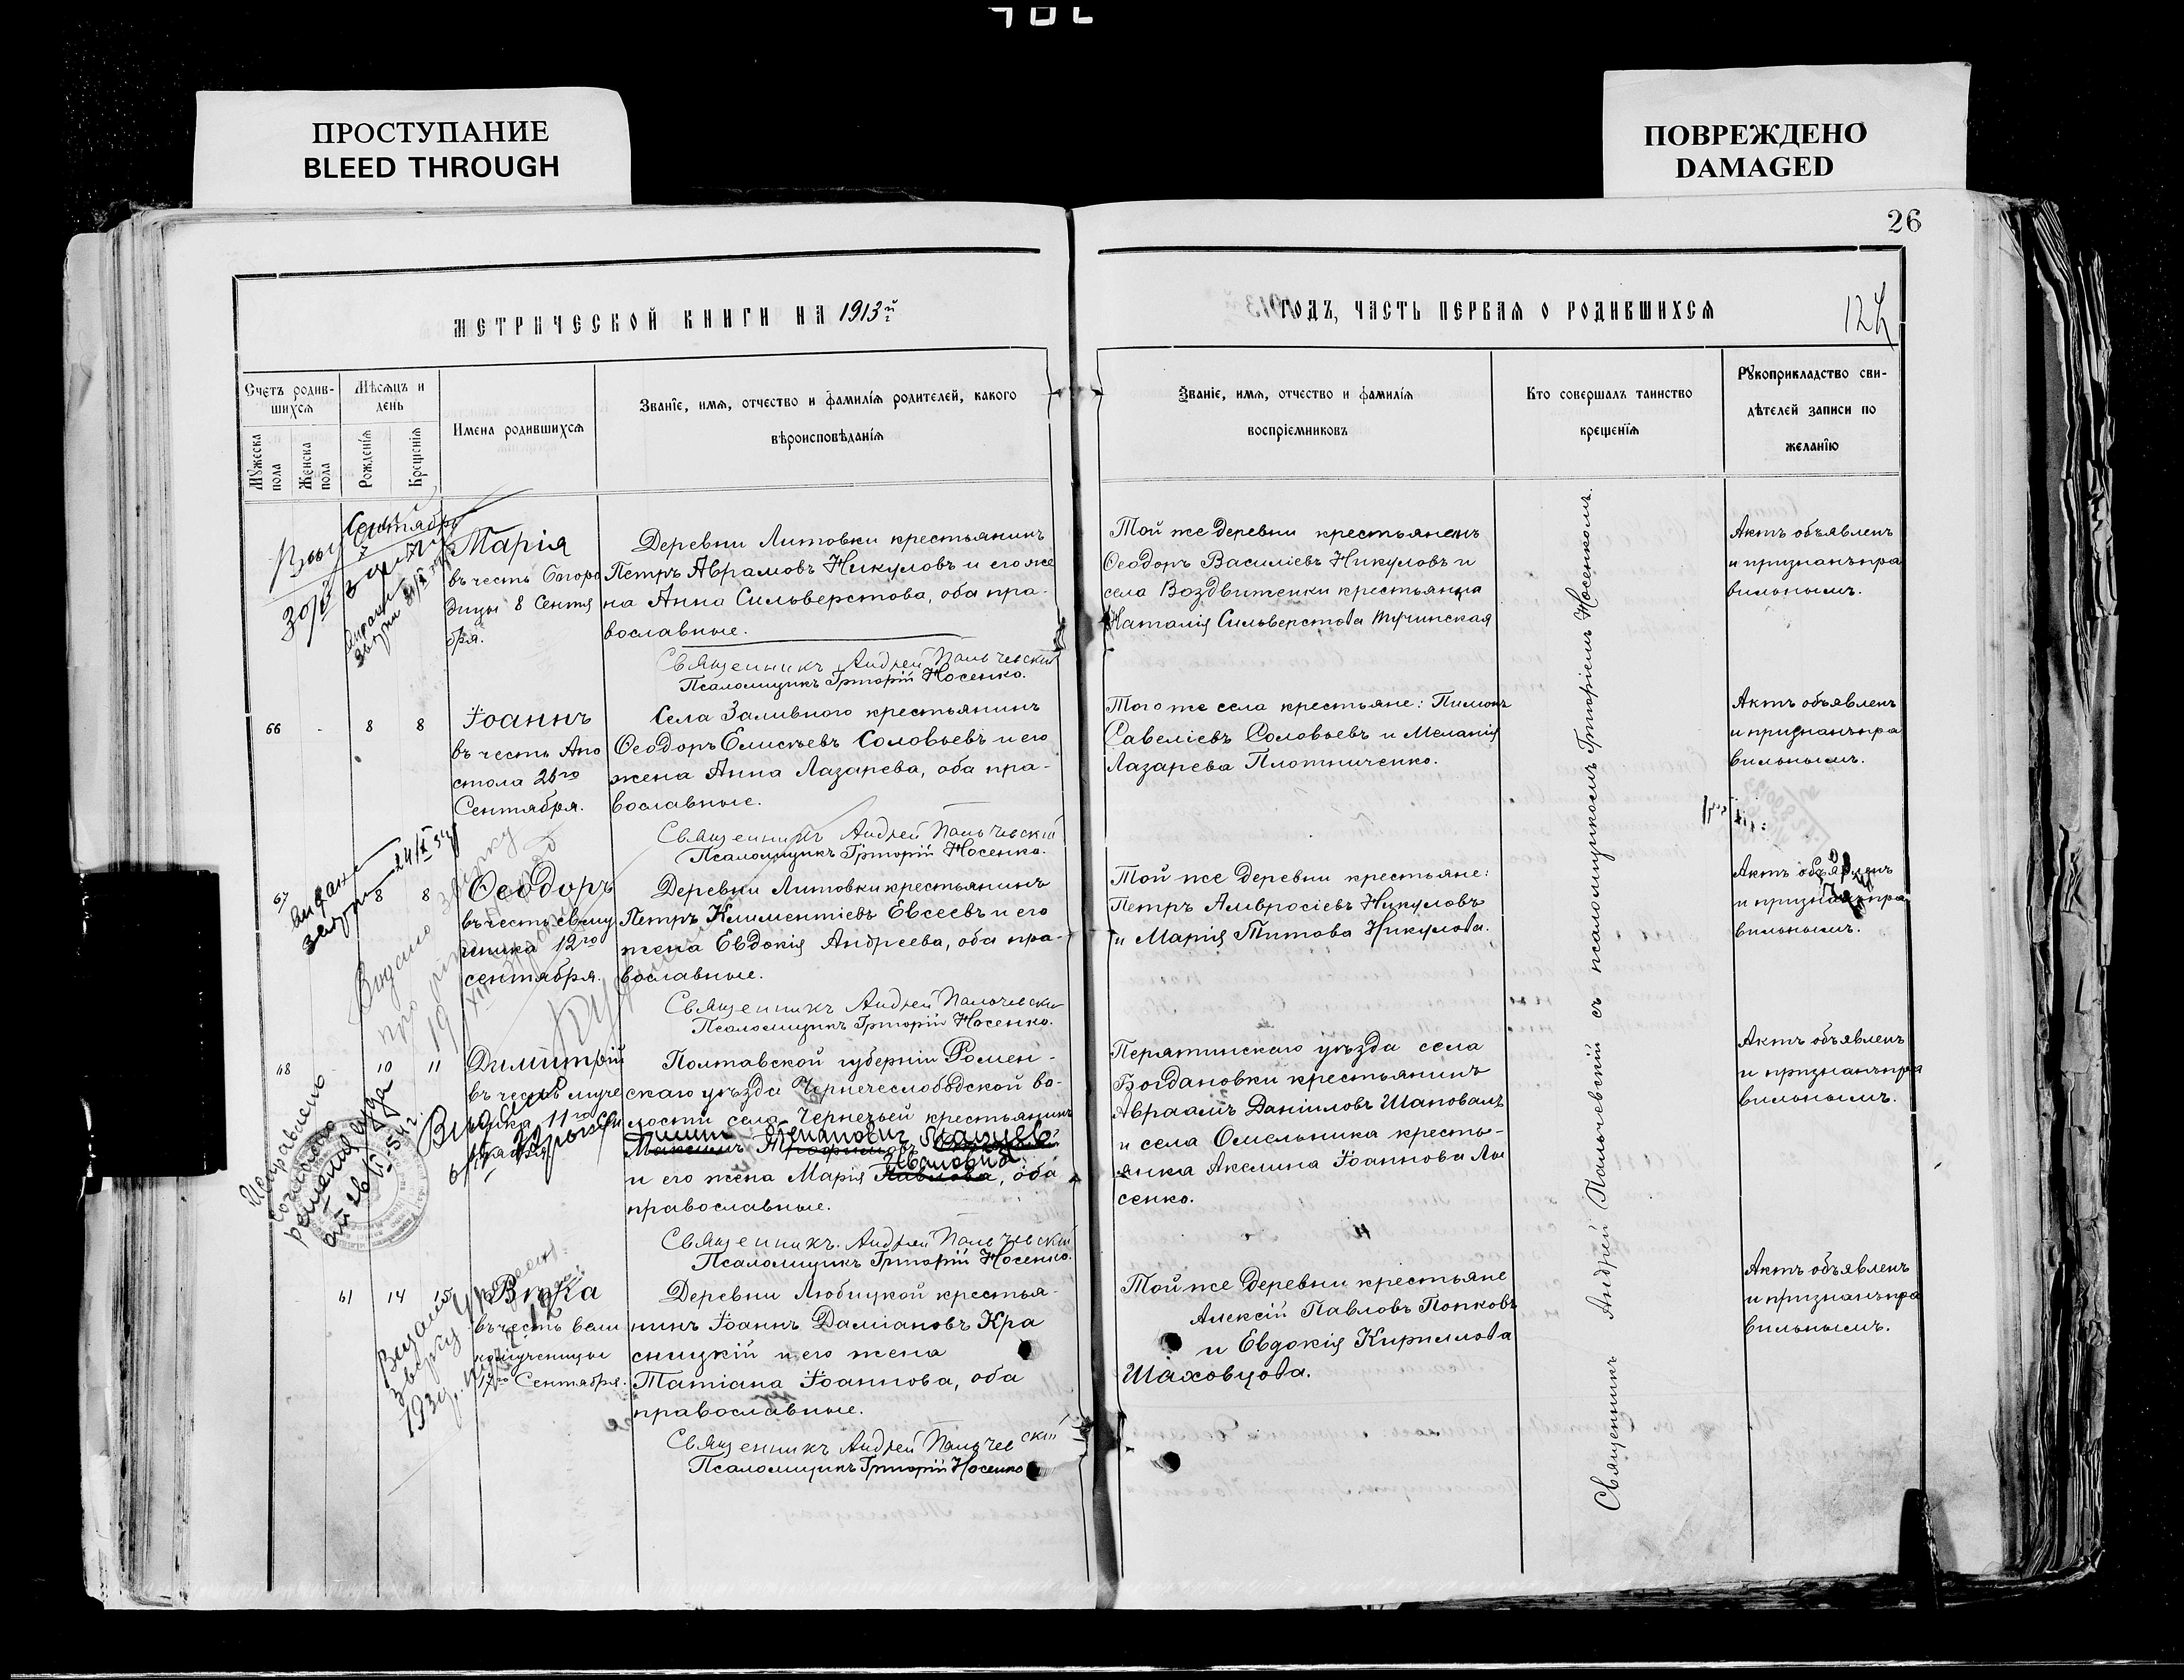 ПРОСТУПАНИЕ
BLEED THROUGH
ПОВРЕЖДЕНО
DAMAGED
26
МЕТРИЧЕСКОЙ КНИГИ НА 1913й
ГОДЪ, ЧАСТЬ ПЕРВАЯ О РОДИВШИХСЯ
Счетъ родив-
шихся
Мѣсяцъ и
день
Мужеска
пола
Женска
пола
Рожденія
Крещенія
Имена родившихся
Званіе, имя, отчество и фамилія родителей, какого
вѣроисповѣданія
Званіе, имя, отчество и фамилія
воспріемниковъ
Кто совершалъ таинство
крещенія
Рукоприкладство сви-
дѣтелей записи по
желанію
Сентябрь
Марія
въ честь Богоро
дицы 8 Сентя
бря.
Деревни Литовки крестьянинъ
Петръ Абрамовъ Никуловъ и его же
на Анна Сильверстова, оба пра-
вославные.
Священникъ Андрей Пальчевскій
Псаломщикъ Григорій Носенко.
Той же деревни крестьяненъ
Ѳеодоръ Василіевъ Никуловъ и
села Воздвиженки крестьянка
Наталія Сильверстова Тучинская
Актъ объявленъ
и признанъ пра
вильнымъ.
66 - 8 8
Іоаннъ
въ честь Апо
стола 26го
Сентября.
Села Заливного крестьянинъ
Ѳеодоръ Елисѣевъ Соловьевъ и его
жена Анна Лазарева, оба пра-
вославные.
Священникъ Андрей Пальчевскій
Псаломщикъ Григорій Носенко.
Того же села крестьяне: Пимонъ
Савеліевъ Соловьевъ и Меланія
Лазарева Плотниченко.
Актъ объявленъ
и признанъ пра
вильнымъ.
67 8 8
Ѳеодоръ
въ честь свящ
еника 12го
сентября.
Деревни Литовки крестьянинъ
Петръ Климентіевъ Евсеевъ и его
жена Евдокія Андреева, оба пра-
вославные.
Священникъ Андрей Пальчевскій
Псаломщикъ Григорій Носенко.
Той же деревни крестьяне:
Петръ Амвросіевъ Никуловъ
и Марія Титова Никулова.
Актъ объявленъ
и признанъ пра
вильнымъ.
68 10 11
Димитрій
въ честь муче
ника 11го
Полтавской губерніи Ромен-
скаго уѣзда Чернечеслободской во-
лости села Чернечьей крестьянинъ
Степанович
Максимъ
Ивановна
и его жена Марія Павлова, оба
православные.
Священникъ Андрей Пальчевскій
Псаломщикъ Григорій Носенко.
Исправлено
согласно
решения суда
Пирятинскаго уѣзда села
Богдановки крестьянинъ
Авраамъ Даніиловъ Шаповалъ
и села Омельника кресть-
янка Акелина Іоаннова Лы
сенко.
Актъ объявленъ
и признанъ пра
вильнымъ.
61 14 15
Вѣра
въ честь вели
комученицы
17го Сентября.
Деревни Любицкой крестья-
нинъ Іоаннъ Даміановъ Кра
сницкій и его жена
Татіана Іоаннова, оба
православные.
Священникъ Андрей Пальчевскій
Псаломщикъ Григорій Носенко
Той же деревни крестьяне
Алексій Павловъ Попковъ
и Евдокія Кириллова
Шаховцова.
Актъ объявленъ
и признанъ пра
вильнымъ.
Священникъ Андрей Пальчевскій съ псаломщикомъ Григоріемъ Носенкомъ.